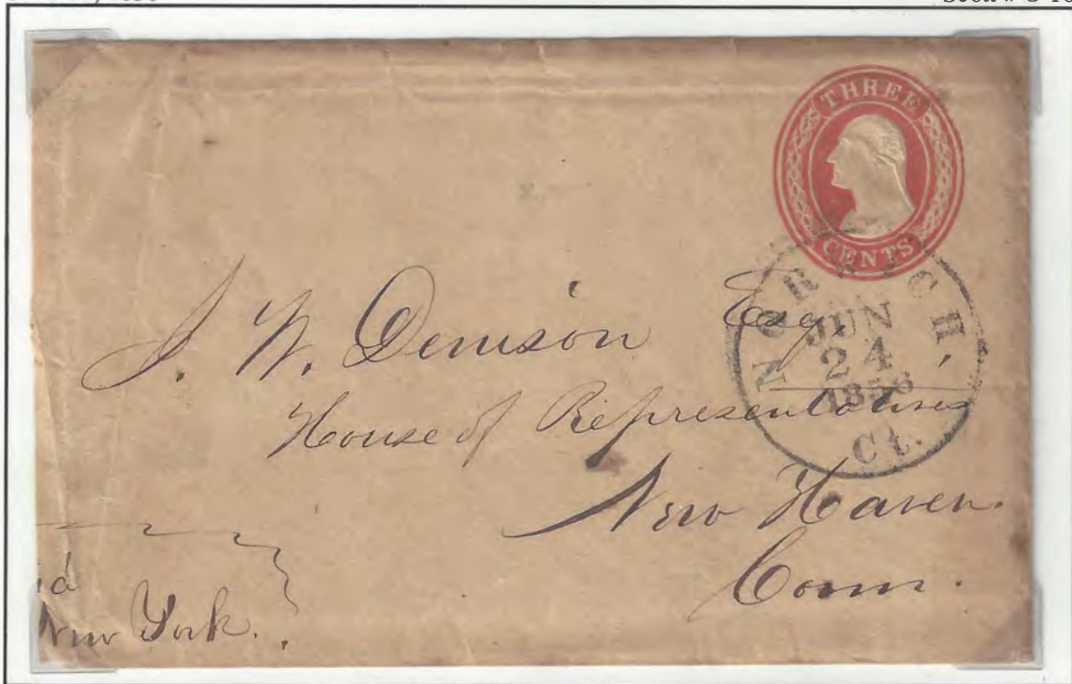 THREE
CENTS
NORWICH
JUN
24
1856
Ct.
J. W. Denison Esq.,
House of Representatives
New Haven.
Conn.
id
New York.